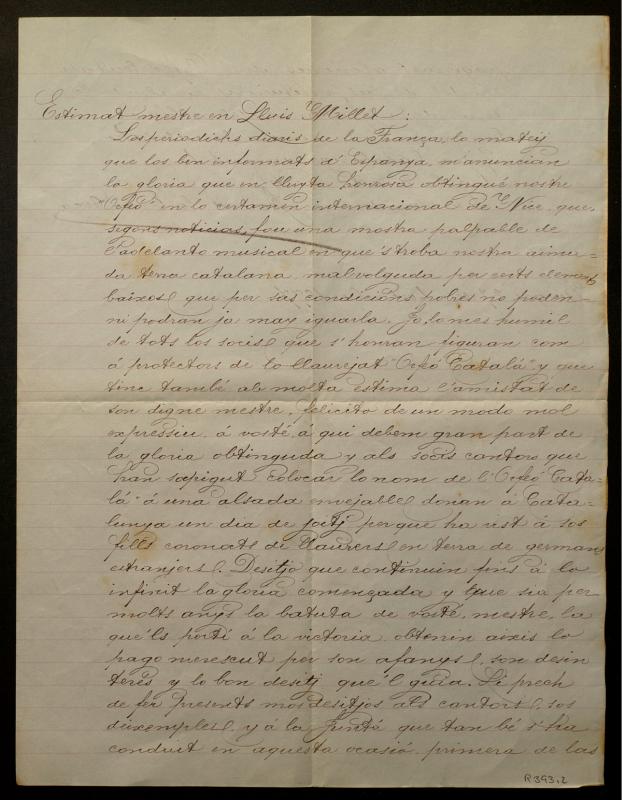 Estimat mestre en Lluis Millet:
Los periodichs diaris de la França, lo mateix
que los ben informats d'Espanya, m'anuncian
la gloria que en lluyta honrosa obtingué nostre
"Orfeó" en lo certamen internacional de Niça, que,
segons noticias, fou una mostra palpable de
l'adelanto musical en que's troba nostra aima-
da terra catalana, mal volguda per certs elements
baixos que per sas condicions pobres no poden
ni podran ja may igualarla. Jo, lo mes humil
de tots los socis que s'honran figuran com
á protectors de lo llaurejat "Orfeó Catalá" y que
tinc també ab molta estima l'amistat de
son digne mestre, felicito de un modo mol
expressiu, á vosté, á qui debem gran part de
la gloria obtinguda y als socis cantors que
han sapigut colocar lo nom de l'"Orfeó Cata-
lá" á una alsada envejable donan á Cata-
lunya un dia de joitj perque ha vist á sos
fills coronats de llaurers en terra de germans
estranjers. Desitjo que continuin fins á lo
infinit la gloria comensada y que sia per
molts anys la batuta de vosté, mestre, la
que'ls porti á la victoria obtenin aixis lo
pago merescut per son afanys, son desin
terés y lo bon desitj que'l guia. Li prech
de fer presents mos desitjos als cantors, sos
deixemples, y á la Junta que tan bé s'ha
conduit en aquesta ocasió, primera de las
R 393,2